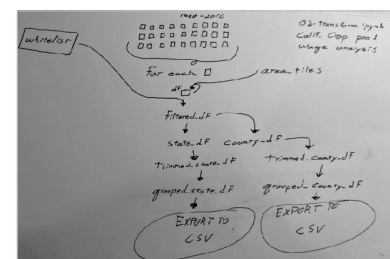 1990-2016
02-transform.ipynb
Calif. Crop prod
Wage analysis
whitelist
For each
area_files
dF
Filtered_dF
state_dF
county_dF
Trimmed_state_dF
Trimmed_county_dF
grouped_state_dF
grouped_county_dF
EXPORT TO
CSV
EXPORT TO
CSV